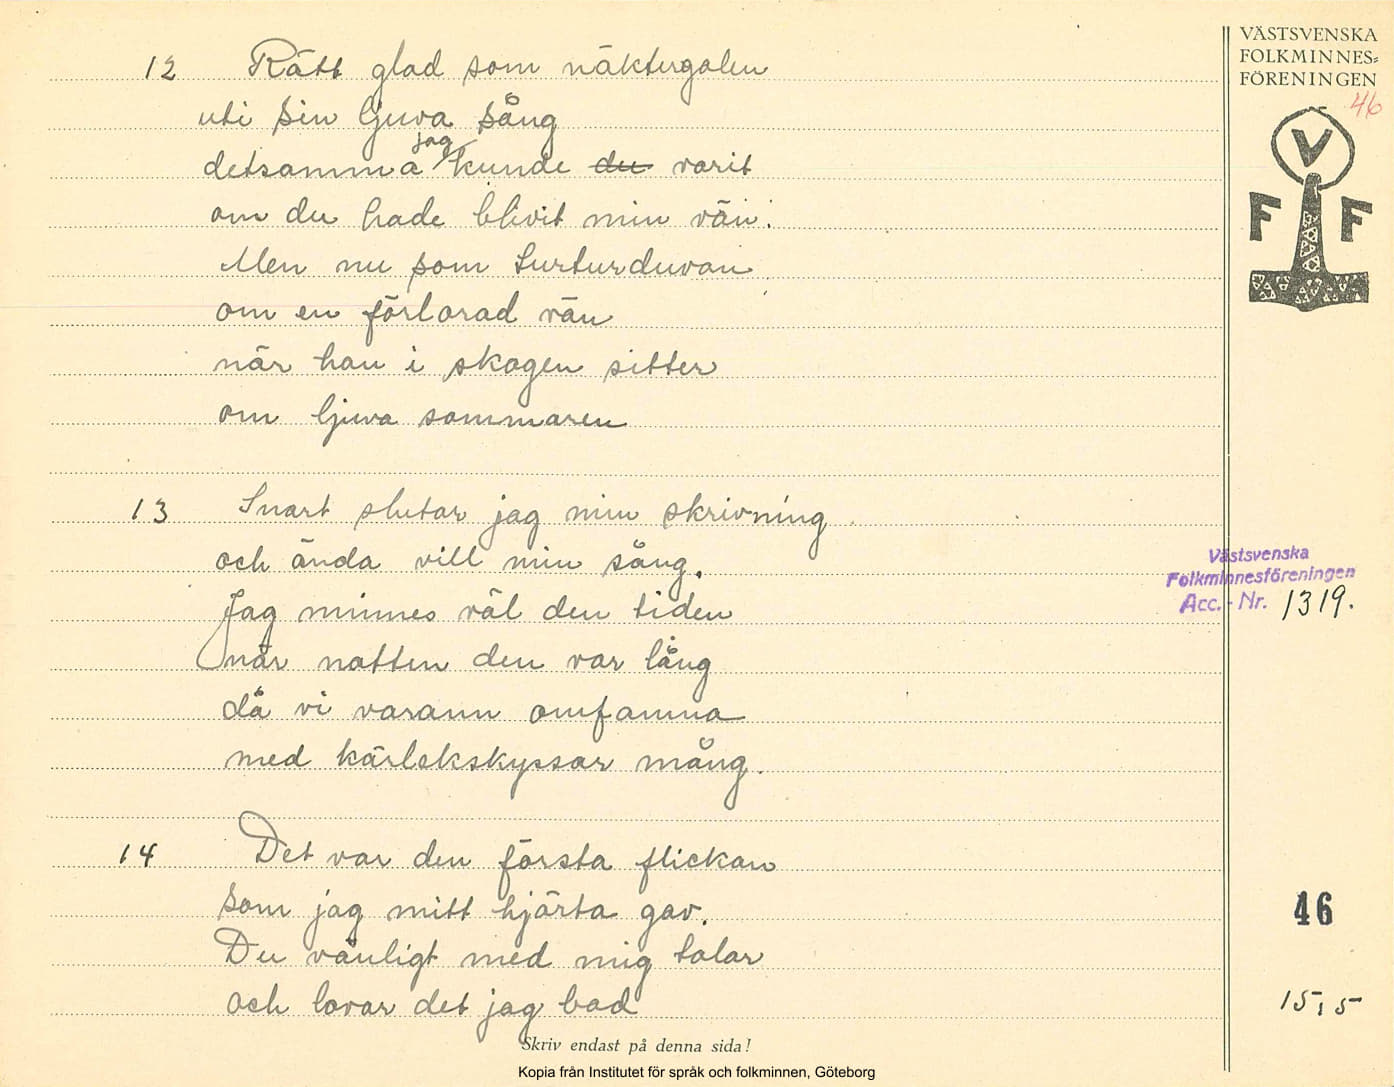 12 Rätt glad som näktergalen
uti sin ljuva sång
detsamma jag kunde du varit
om du hade blivit min vän.
Men nu som turturduvan
om en förlorad vän
när han i skogen sitter
om ljuva sommaren
13 Snart slutar jag min skrivning
och ända vill min sång.
Jag minnes väl den tiden
när natten den var lång
då vi varann omfamna
med kärlekskyssar mång.
14 Det var den första flickan
som jag mitt hjärta gav.
Du vänligt med mig talar
och lovar det jag bad
Skriv endast på denna sida!
Kopia från Institutet för språk och folkminnen, Göteborg
VÄSTSVENSKA
FOLKMINNES=
FÖRENINGEN
46
V
F F
Västsvenska
Folkminnesföreningen
Acc. - Nr. 1319.
46
15,5